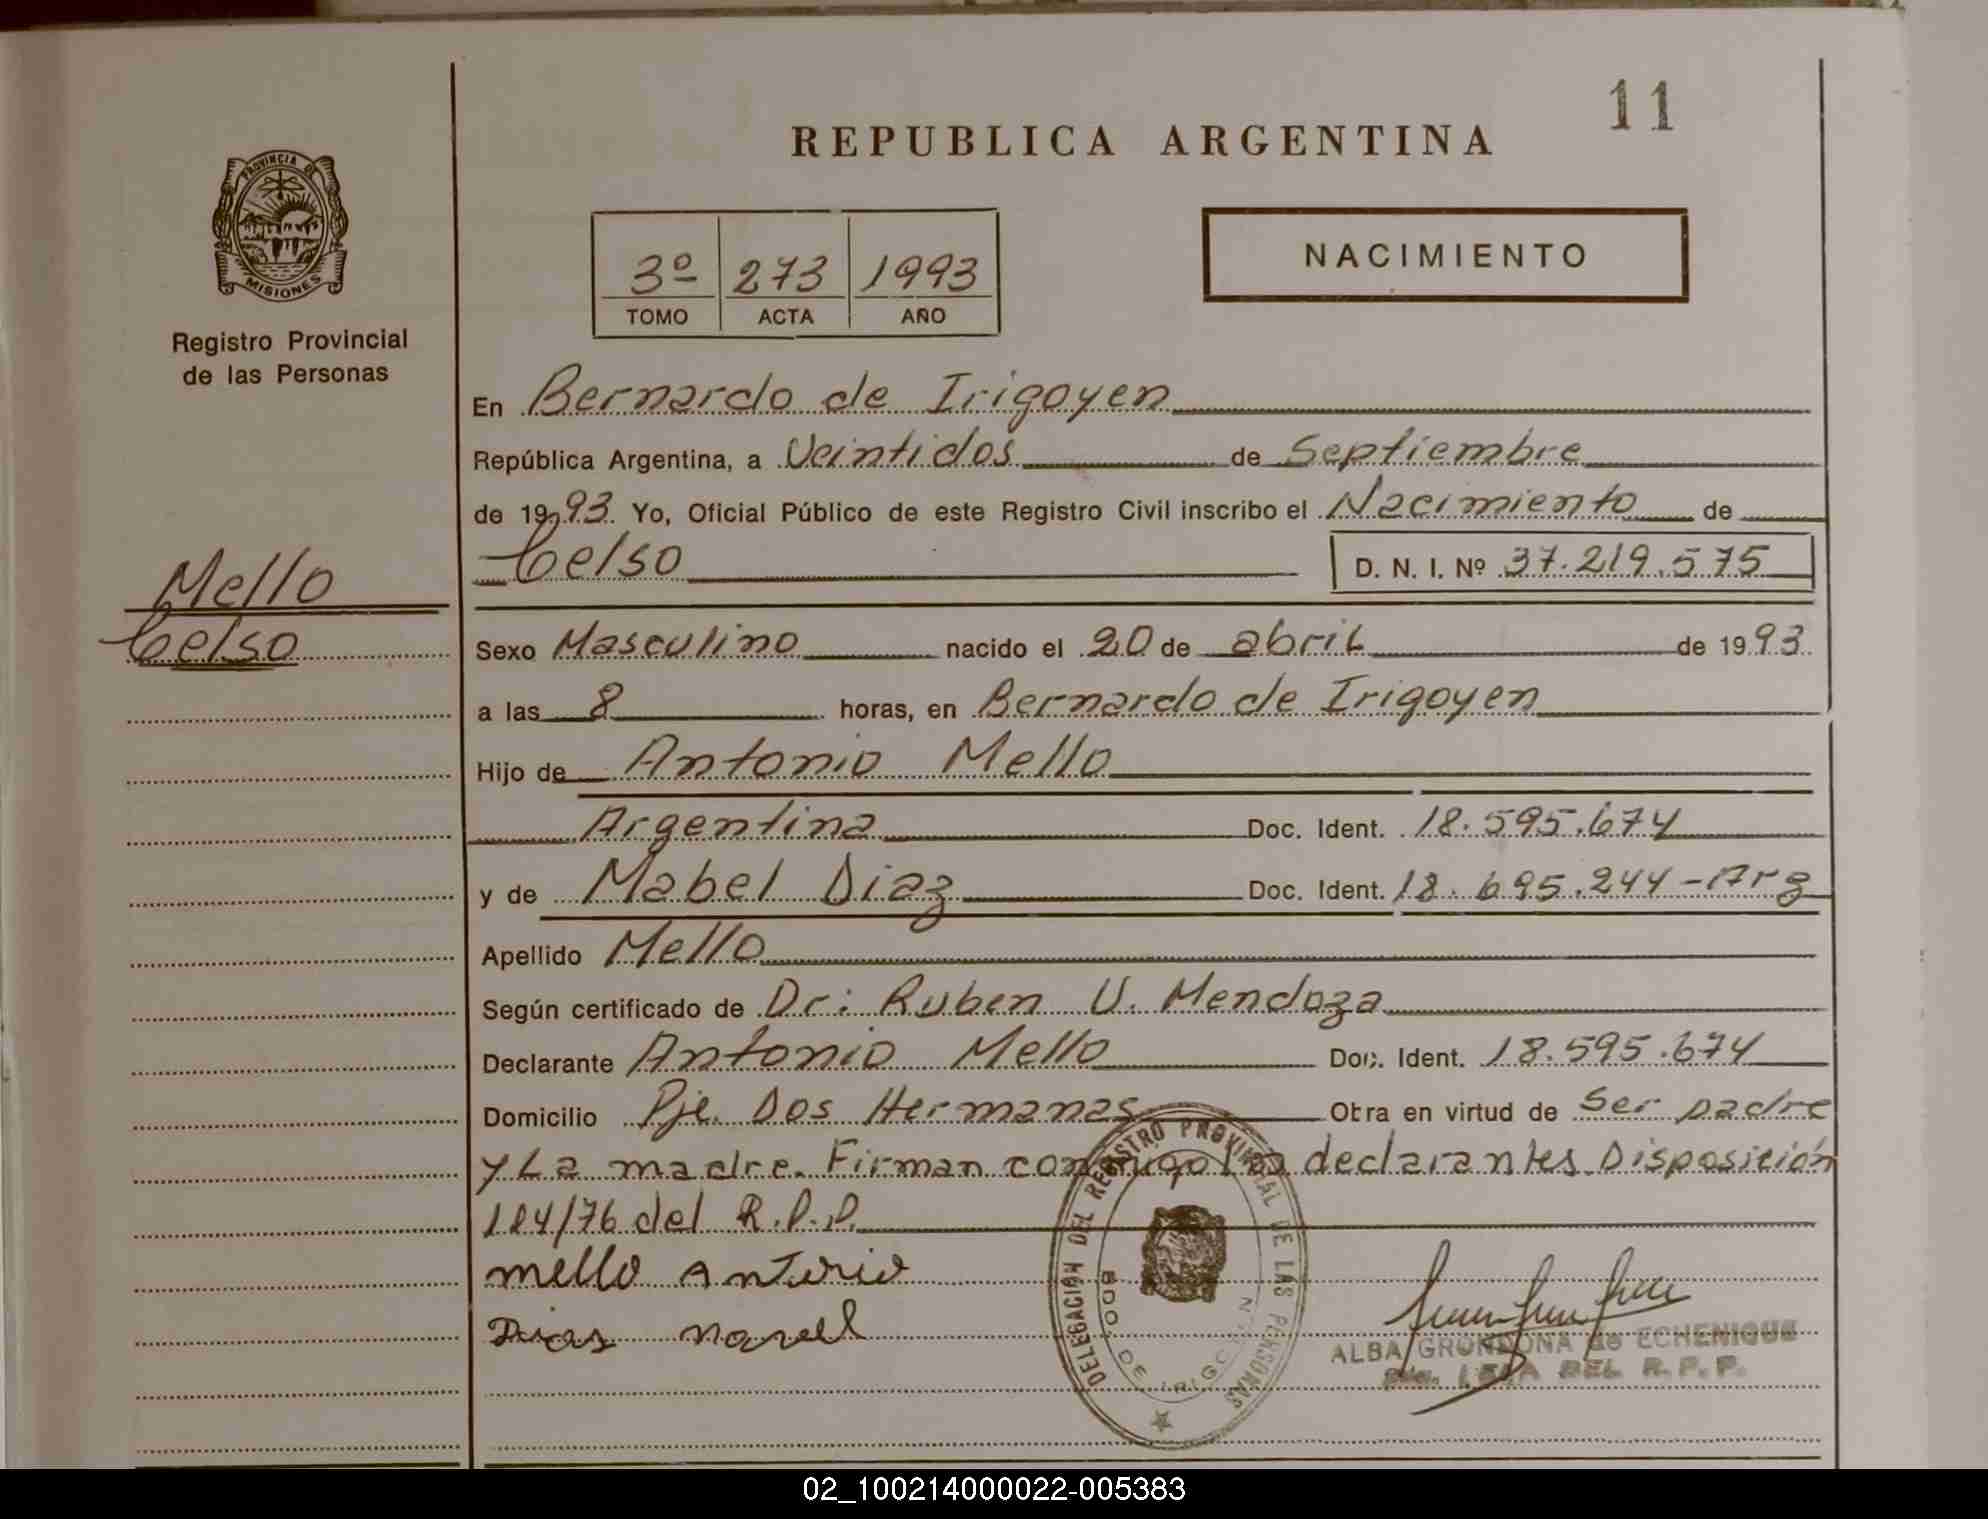 11
REPUBLICA ARGENTINA
PROVINCIA DE
MISIONES
Registro Provincial
de las Personas
NACIMIENTO
3º 273 1993
TOMO ACTA AÑO
En Bernardo de Irigoyen
República Argentina, a Veintidos de Septiembre
de 1993 Yo, Oficial Público de este Registro Civil inscribo el Nacimiento de
Celso D. N. I. Nº 37.219.575
Mello
Celso
Sexo Masculino nacido el 20 de abril de 1993
a las 8 horas, en Bernardo de Irigoyen
Hijo de Antonio Mello
Argentina Doc. Ident. 18.595.674
y de Mabel Diaz Doc. Ident. 18.695.244-Arg
Apellido Mello
Según certificado de Dr: Ruben U. Mendoza
Declarante Antonio Mello Doc. Ident. 18.595.674
Domicilio Pje. Dos Hermanas Obra en virtud de Ser padre
y La madre. Firman conmigo los declarantes Disposición
184/76 del R.P.P.
mello Antonio
Dias
DELEGACIÓN DEL REGISTRO PROVINCIAL DE LAS PERSONAS
BDO. DE IRIGOYEN
ALBA GRONDONA de ECHENIQUE
DEL R. P. P.
02_100214000022-005383